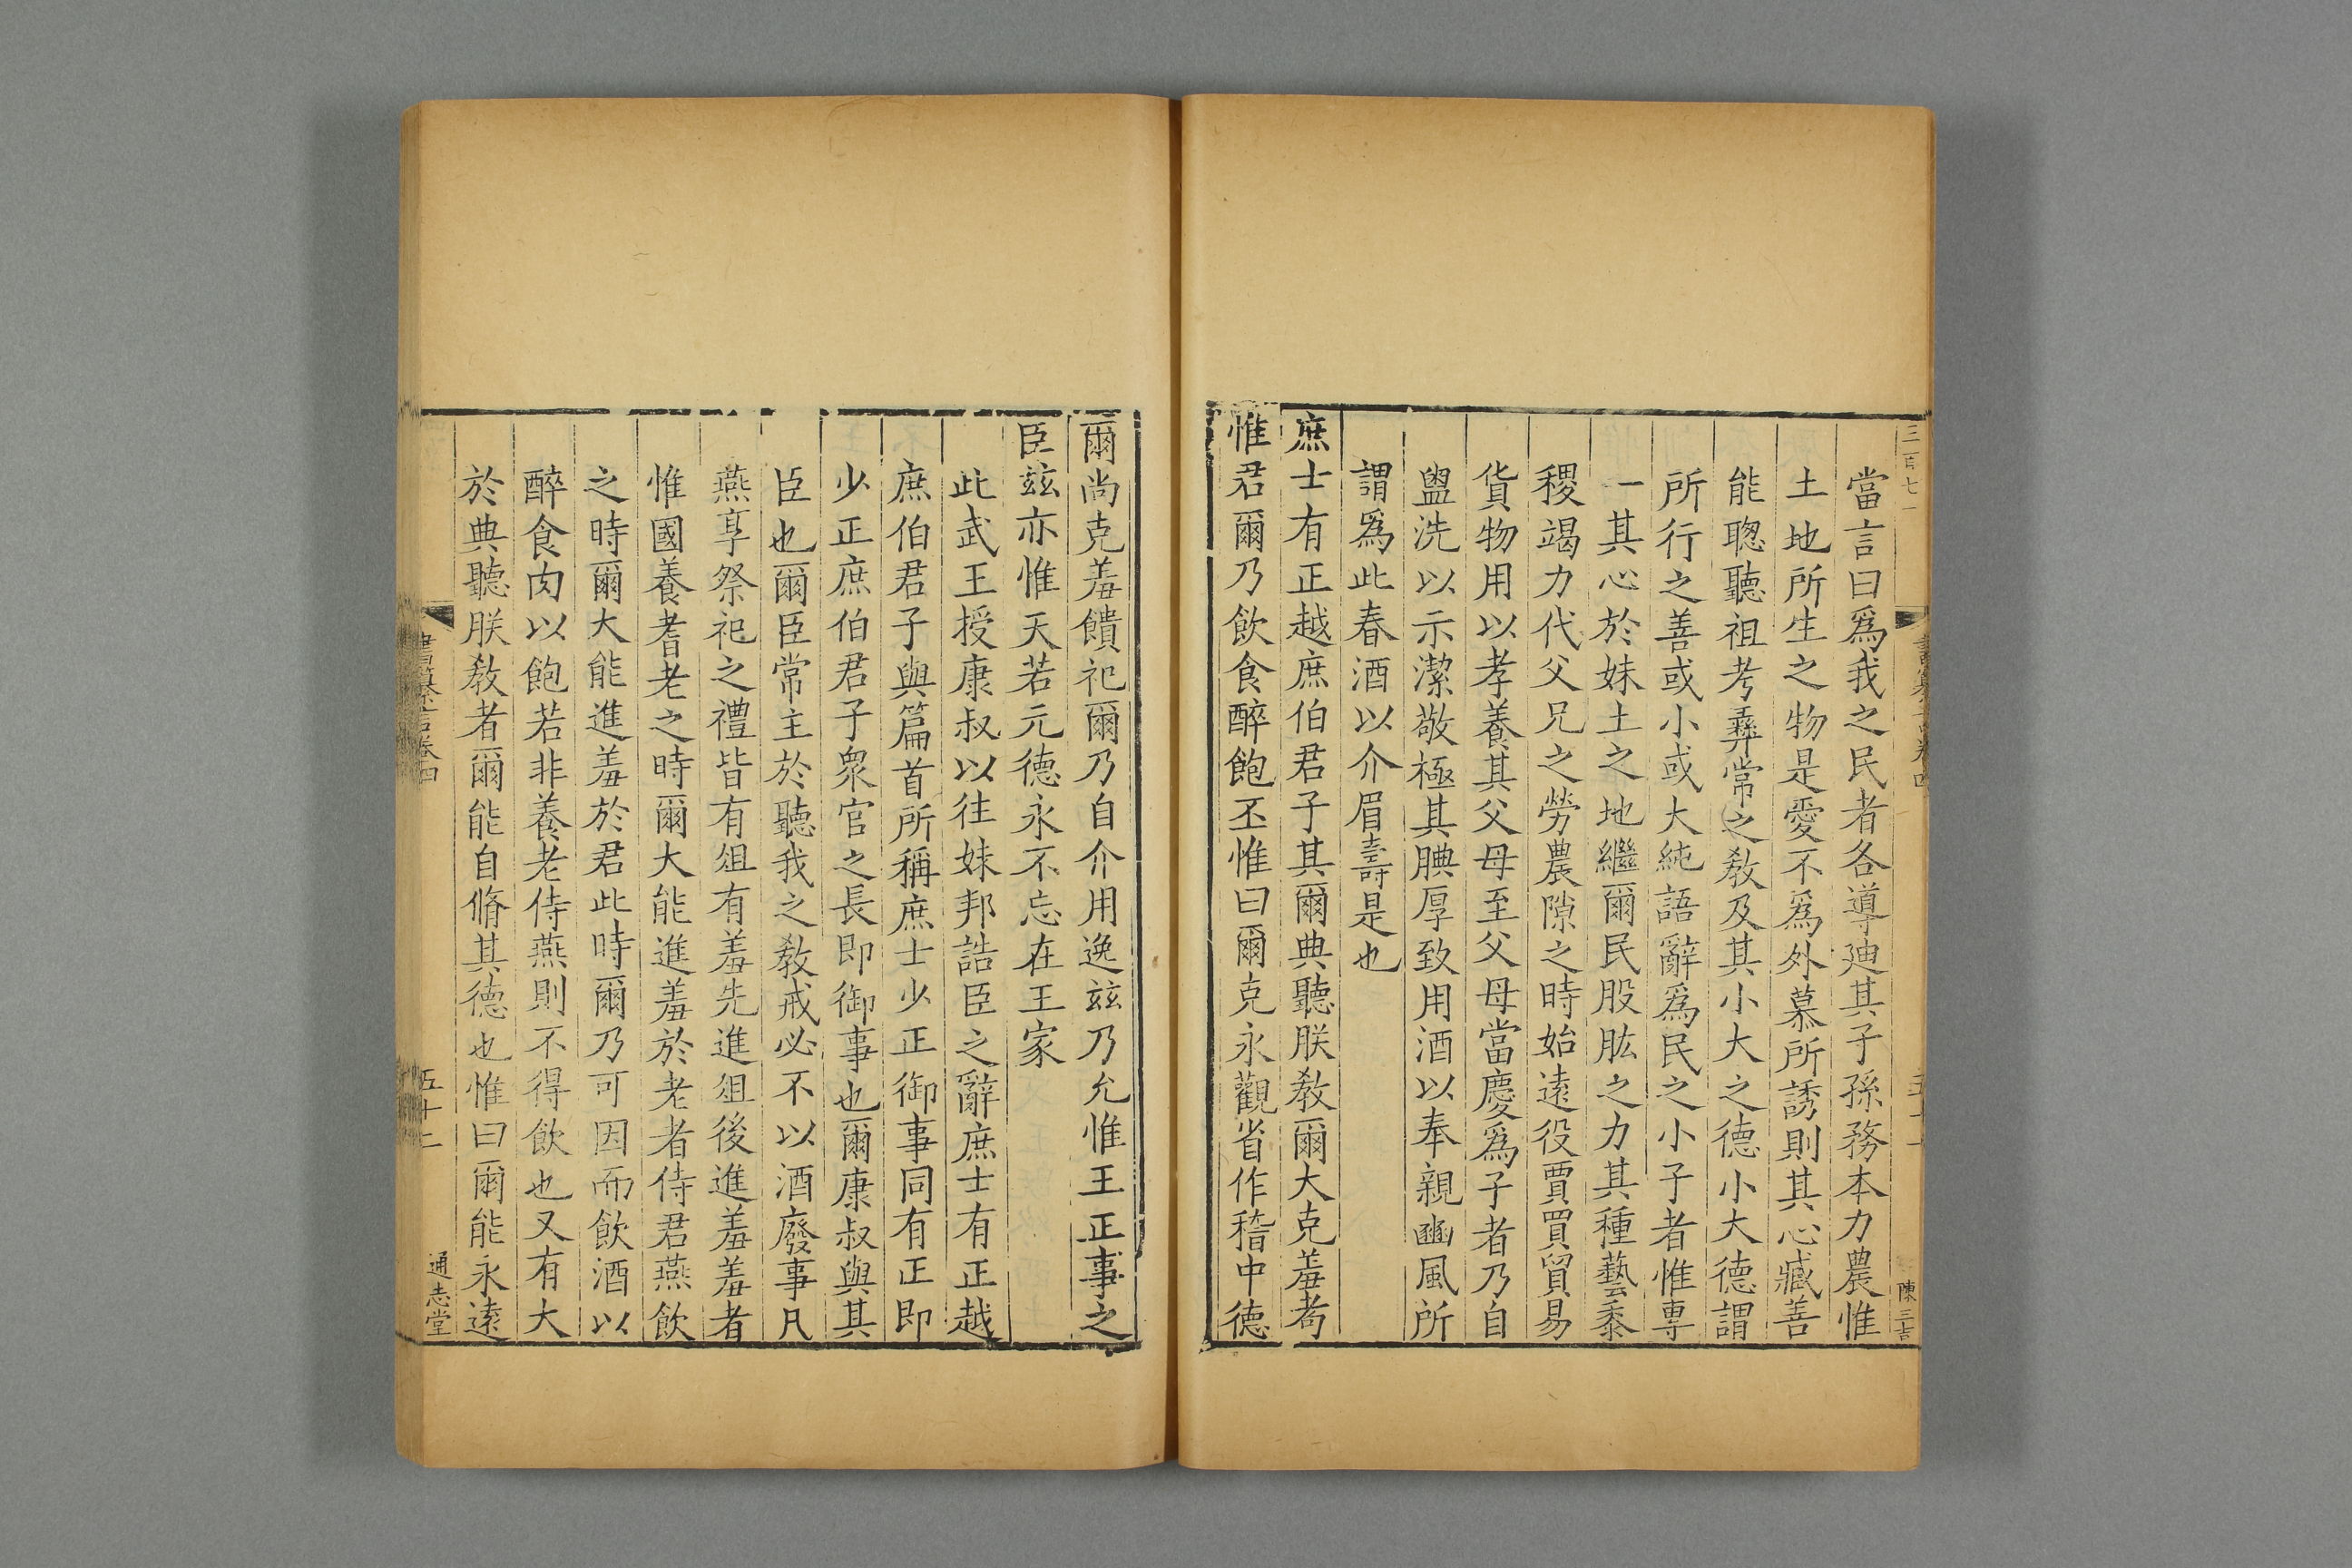 三百七一
陳三吉
當言曰爲我之民者各導廸其子孫務本力農惟
土地所生之物是愛不爲外慕所誘則其心臧善
能聦聽祖考彛常之敎及其小大之德小大德謂
所行之善或小或大純語辭爲民之小子者惟專
一其心於妹土之地繼爾民股肱之力其種藝黍
稷竭力代父兄之勞農隙之時始遠役賈買貿易
貨物用以孝養其父母至父母當慶爲子者乃自
盥洗以示潔敬極其腆厚致用酒以奉親豳風所
謂爲此春酒以介眉壽是也
庶士有正越庶伯君子其爾典聽朕敎爾大克羞耇
惟君爾乃飲食醉飽丕惟曰爾克永觀省作稽中德
爾尚克羞饋祀爾乃自介用逸兹乃允惟王正事之
臣兹亦惟天若元德永不忘在王家
此武王授康叔以往妹邦誥臣之辭庶士有正越
庶伯君子與篇首所稱庶士少正御事同有正即
少正庶伯君子衆官之長即御事也爾康叔與其
臣也爾臣常主於聽我之敎戒必不以酒廢事凡
燕享祭祀之禮皆有俎有羞先進俎後進羞羞者
惟國養耆老之時爾大能進羞於老者侍君燕飲
之時爾大能進羞於君此時爾乃可因而飲酒以
醉食肉以飽若非養老侍燕則不得飲也又有大
於典聽朕敎者爾能自脩其德也惟曰爾能永遠
卷四
五十二
通志堂